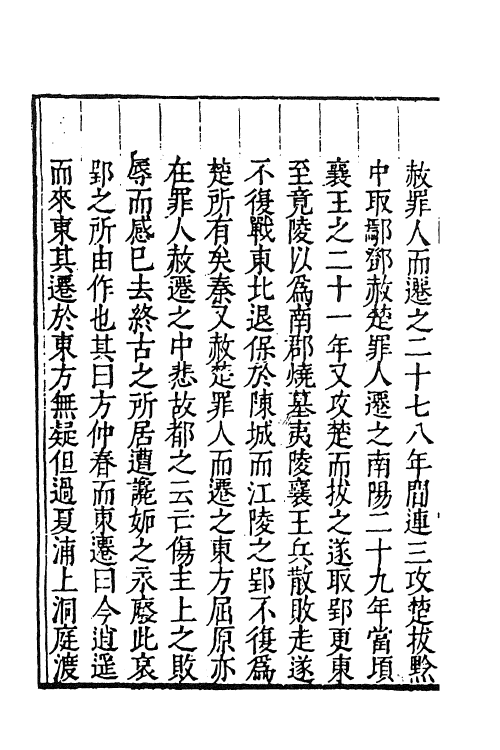 赦罪人而遷之二十七八年間連三攻楚拔黔
中取鄢鄧赦楚罪人遷之南陽二十九年當頃
襄王之二十一年又攻楚而拔之遂取郢更東
至竟陵以爲南郡燒墓夷陵襄王兵散敗走遂
不復戰東北退保於陳城而江陵之郢不復爲
楚所有矣秦又赦楚罪人而遷之東方屈原亦
在罪人赦遷之中悲故都之云亡傷主上之敗
辱而感已去終古之所居遭讒妬之永廢此哀
郢之所由作也其曰方仲春而東遷曰今逍遥
而來東其遷於東方無疑但過夏浦上洞庭渡